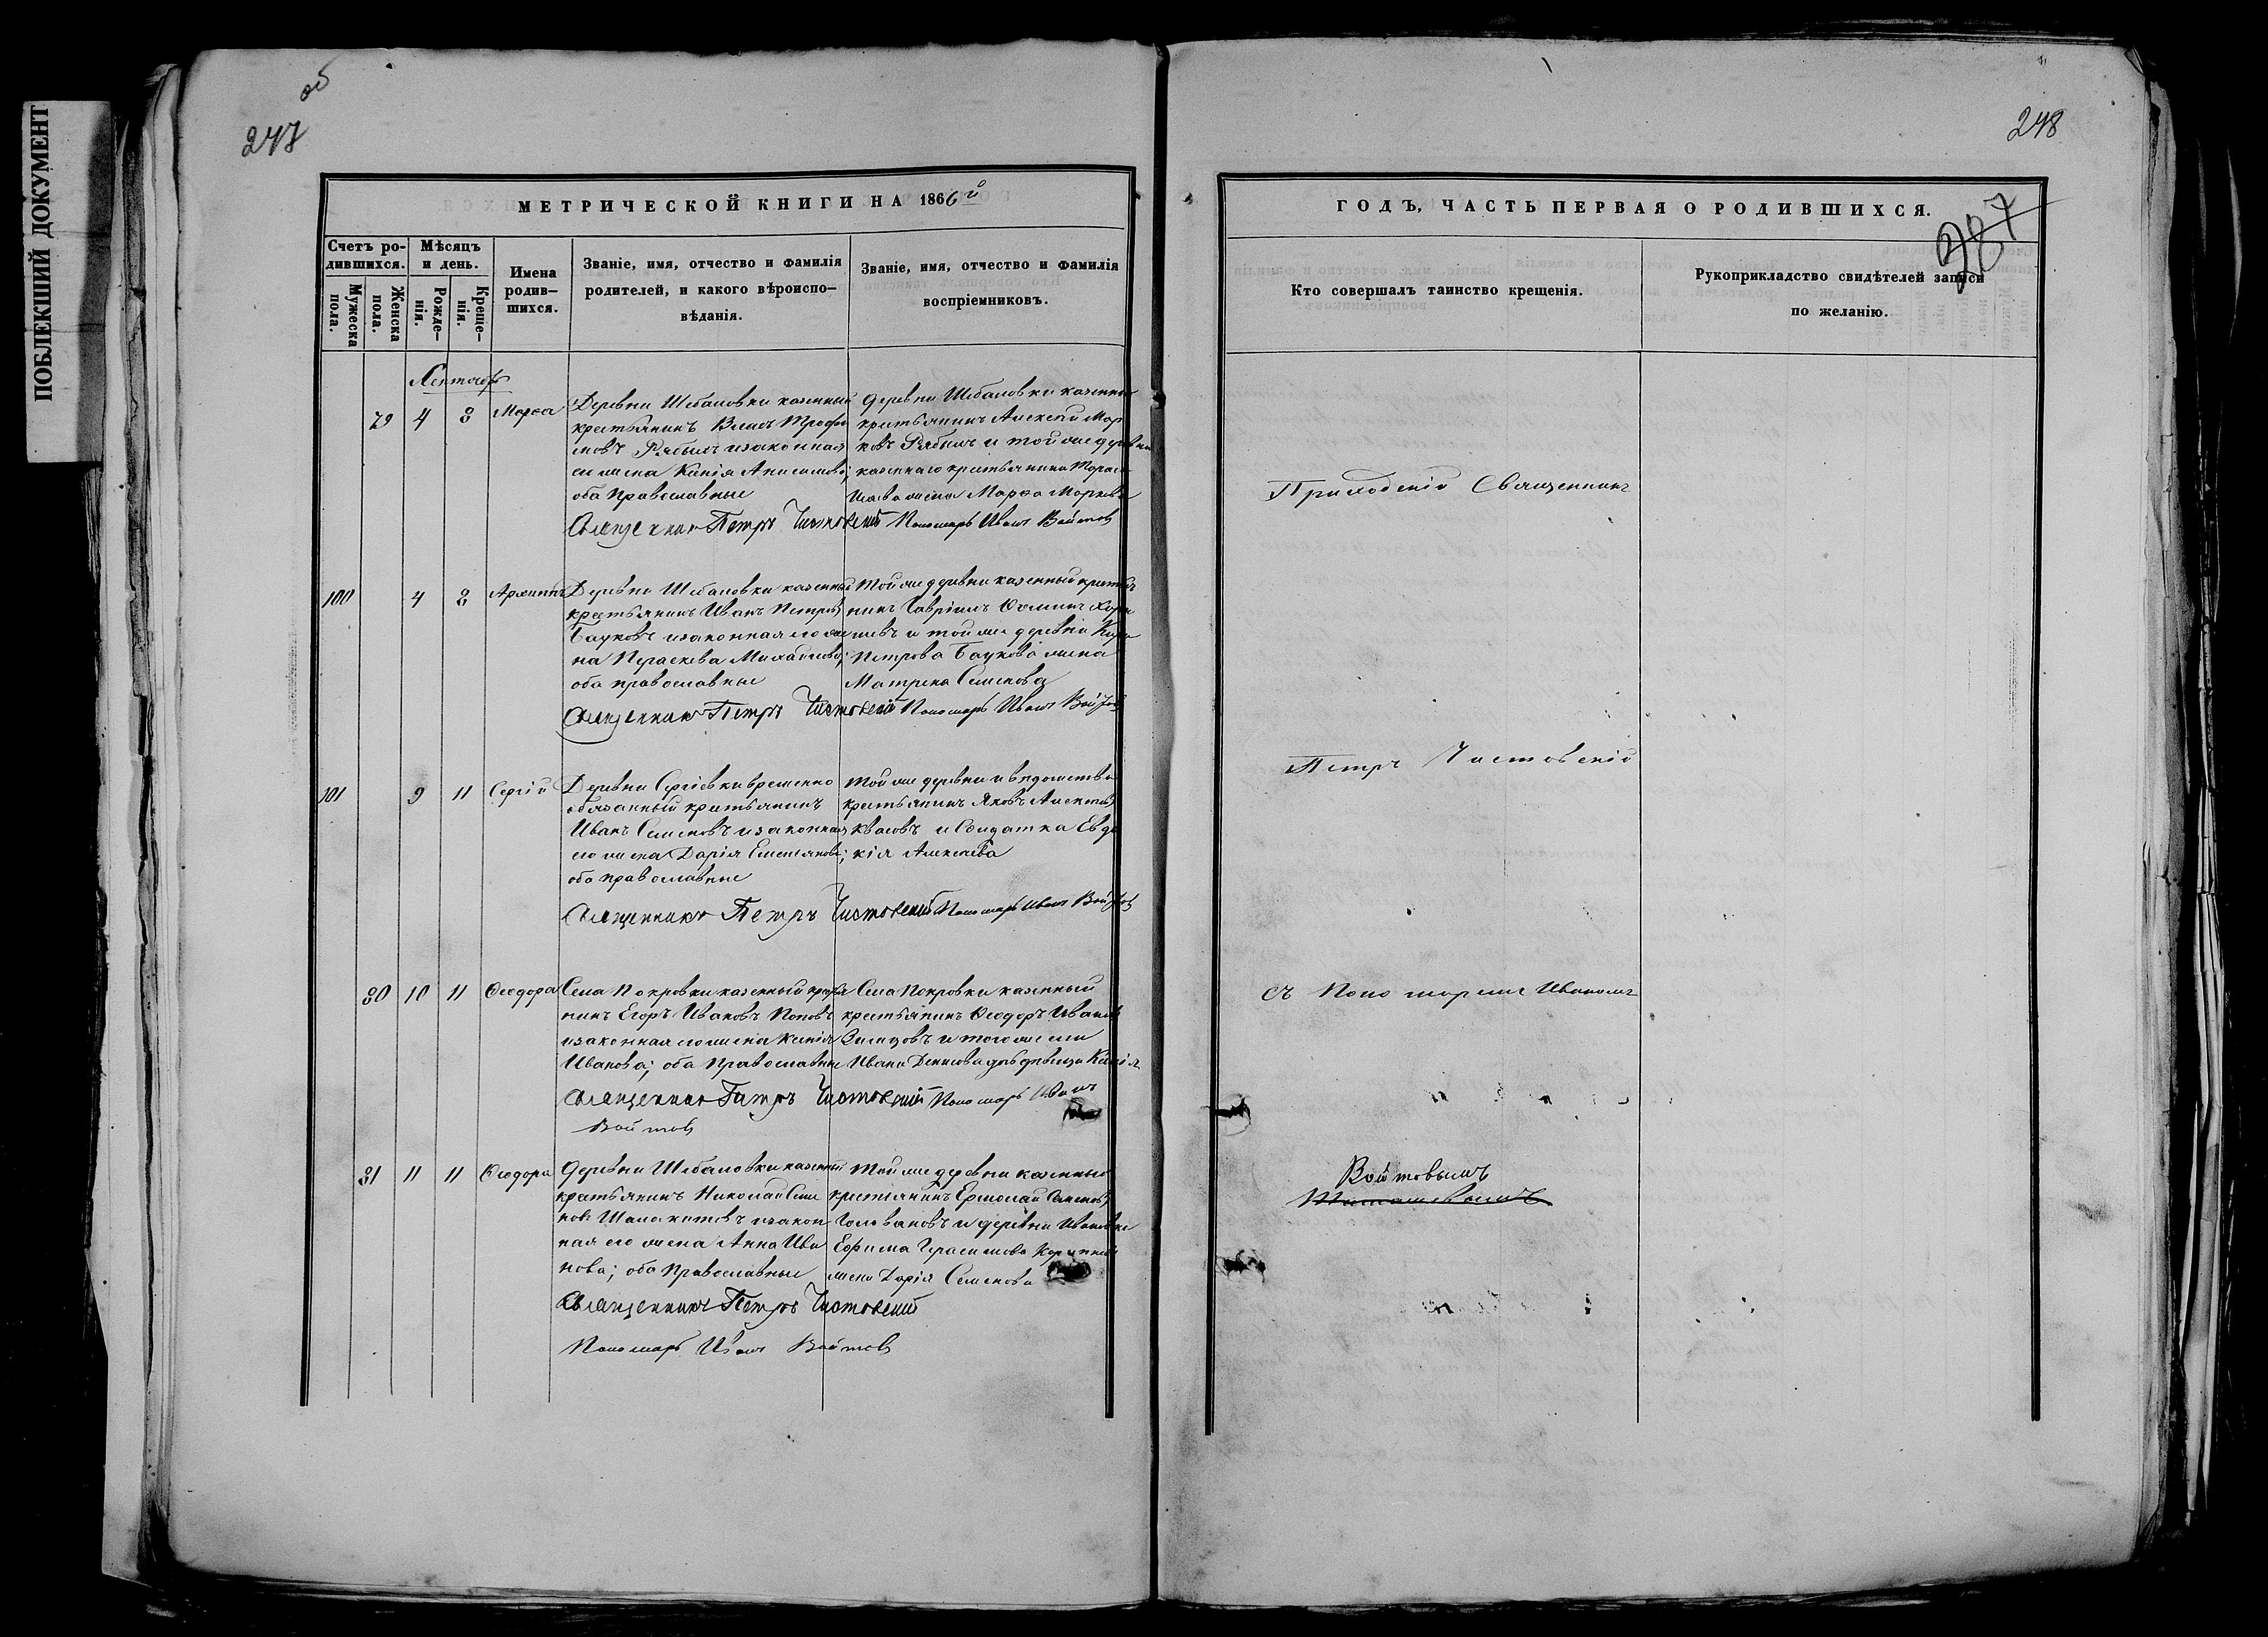 ПОБЛЕКШИЙ ДОКУМЕНТ
об
247
МЕТРИЧЕСКОЙ КНИГИ НА 1866й
Счетъ родившихся.
Мужеска пола.
Женска пола.
Мѣсяцъ и день.
Рожденія.
Крещенія.
Имена родившихся.
Званіе, имя, отчество и фамилія родителей, и какого вѣроисповѣданія.
Званіе, имя, отчество и фамилія воспріемниковъ.
Сентябрь
79 4 8 Марѳа
Деревни Шебаловки казенный
крестьянинъ Власъ Трофи
мовъ Рябыхъ и законная
его жена Ксенія Анисимова;
оба православные
деревни Шебаловки казенный
крестьянинъ Алексѣй Мар
ковъ Рябыхъ и той же деревни
казеннаго крестьянина
жена Марѳа Маркова
Священникъ Петръ Чистовскій Пономарь Иванъ Войтовъ
100 4 8 Архиппъ
Деревни Шебаловки казенный
крестьянинъ Иванъ Петровъ
Бауковъ и законная его же
на Параскева Михайлова;
оба православные
Той же деревни казенный крестья
нинъ Гавріилъ Ѳоминъ
и той же деревни
Петрова Баукова жена
Матрена Семенова
Священникъ Петръ Чистовскій Пономарь Иванъ Войтовъ
101 9 11 Сергій
Деревни Сергіевки временно
обязанный крестьянинъ
Иванъ Семеновъ и законная
его жена Дарія Емельянова;
оба православные
Той же деревни и вѣдомства
крестьянинъ Яковъ Алексѣевъ
Квасовъ и Солдатка Евдо
кія Алексѣева
Священникъ Петръ Чистовскій Пономарь Иванъ Войтовъ
80 10 11 Ѳеодора
Села Покровки казенный крестья
нинъ Егоръ Ивановъ Поповъ
и законная его жена Ксенія
Иванова; оба Православные
Села Покровки казенный
крестьянинъ Ѳеодоръ Ивановъ
и того же села
Ивана Денисова дочь дѣвица Ксенія
Священникъ Петръ Чистовскій Пономарь Иванъ
Войтовъ
81 11 11 Ѳеодора
Деревни Шебаловки казенный
крестьянинъ Николай Семе
новъ и закон
ная его жена Анна Ива
нова; оба Православные
Той же деревни казенный
крестьянинъ Ермолай
Головановъ и деревни Ивановки
Ефима Герасимова
жена Дарія Семенова
Священникъ Петръ Чистовскій
Пономарь Иванъ Войтовъ
248
987
ГОДЪ, ЧАСТЬ ПЕРВАЯ О РОДИВШИХСЯ.
Кто совершалъ таинство крещенія.
Рукоприкладство свидѣтелей записи по желанію.
Приходскій Священникъ
Петръ Чистовскій
съ Пономаремъ Иваномъ
Войтовымъ